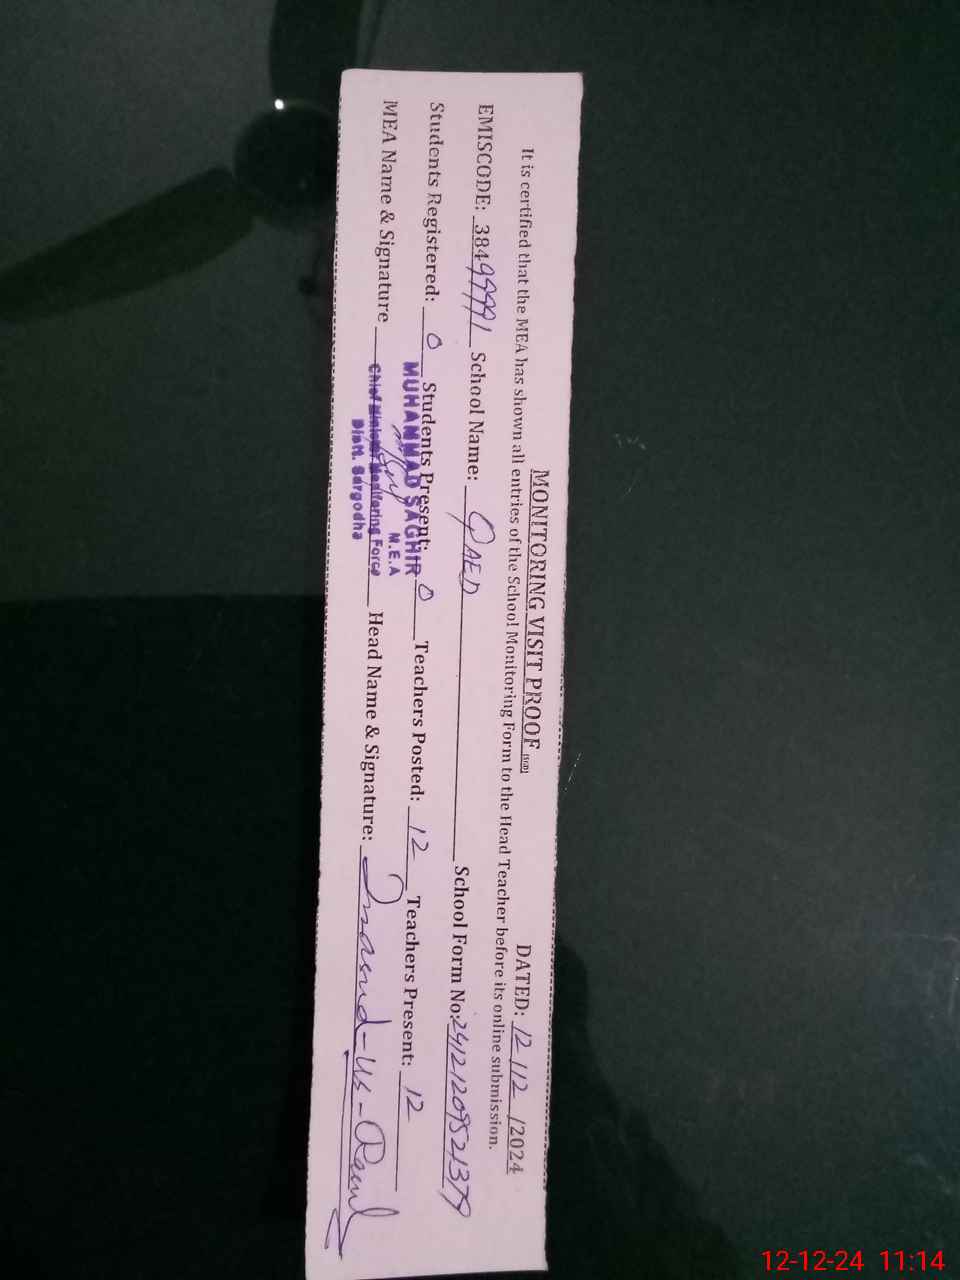 MONITORING VISIT PROOF DATED: 12/12/2024
It is certified that the MEA has shown all entries of the School Monitoring Form to the Head Teacher before its online submission.
EMISCODE: 38499991 School Name: QAED School Form No:
Students Registered: 0 Students Present: 0 Teachers Posted: 12 Teachers Present: 12
MUHAMMAD SAGHIR
M.E.A
MEA Name & Signature Chief Minister Monitoring Force Head Name & Signature:
Distt. Sargodha
12-12-24 11:14